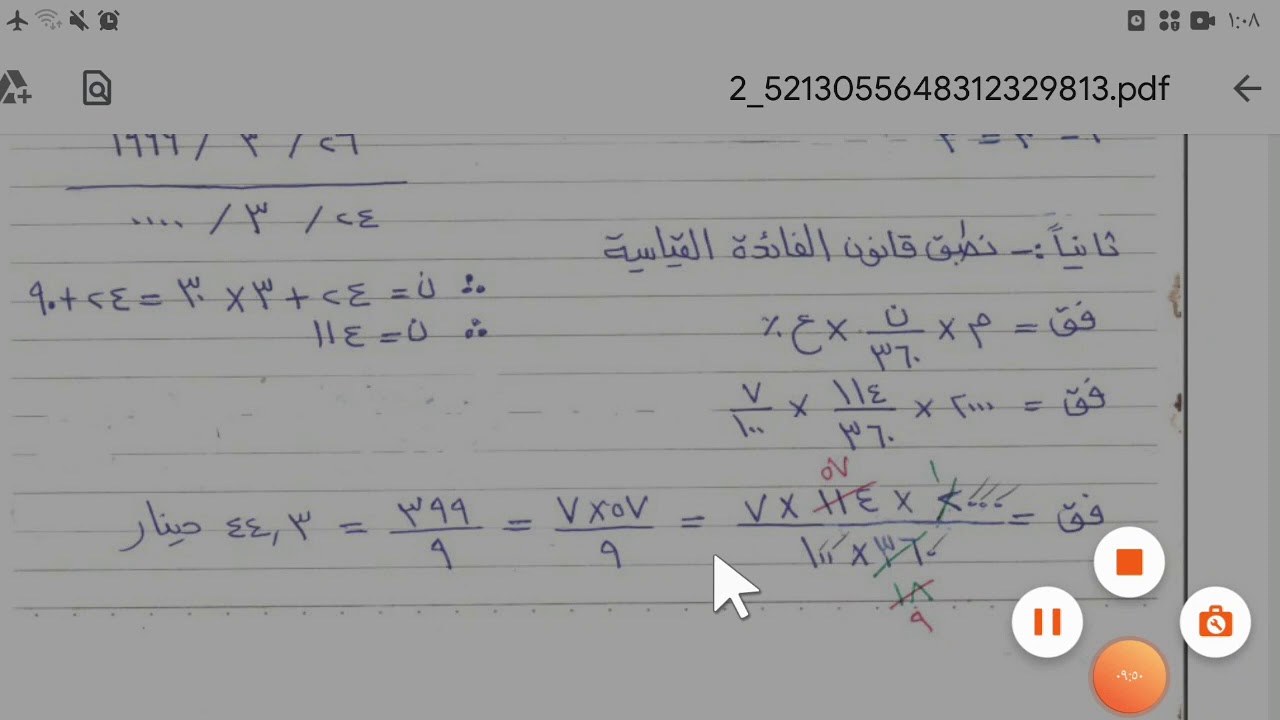 ١:٠٨
2_5213055648312329813.pdf
١٩٩٩ / ٣ / ٢٦
٠٠٠٠ / ٣ / ٢٤
ثانياً :- نطبق قانون الفائدة القياسية
∴ ن = ٢٤ + ٣ × ٣٠ = ٢٤ + ٩٠
∴ ن = ١١٤
فق = م × ن/٣٦٠ × ع٪
فق = ٢٠٠٠ × ١١٤/٣٦٠ × ٧/١٠٠
٥٧ ١
فق = ٢٠٠٠ × ١١٤ × ٧ / ٣٦٠ × ١٠٠ = ٥٧×٧ / ٩ = ٣٩٩ / ٩ = ٤٤,٣ دينار
١٨
٩
٠٩:٥٠